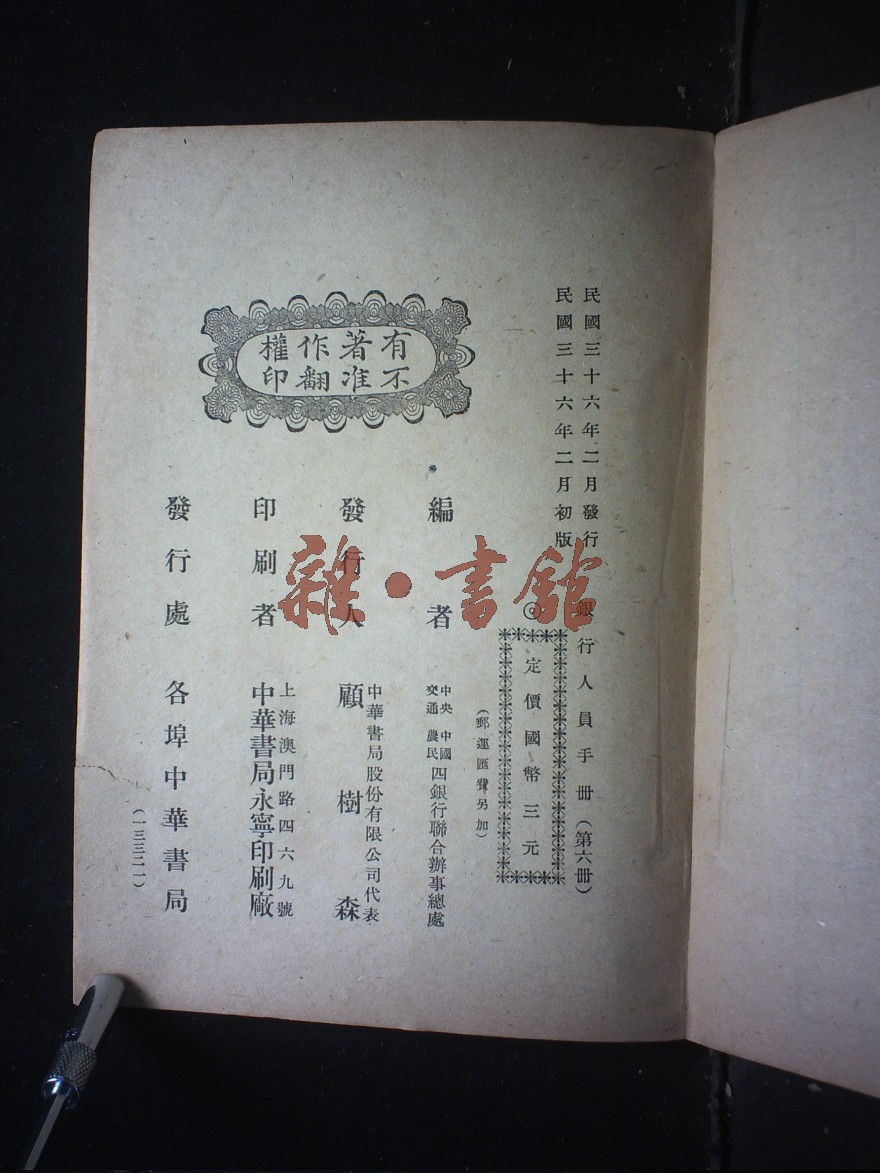 民國三十六年二月發行
民國三十六年二月初版
銀行人員手册(第六册)
◎定價國幣三元
(郵運匯費另加)
有著作權
不准翻印
編者
中央 中國
交通 農民
四銀行聯合辦事總處
發行人
中華書局股份有限公司代表
顧樹森
印刷者
上海澳門路四六九號
中華書局永寧印刷廠
發行處 各埠中華書局
(一三三二一)
雜·書館